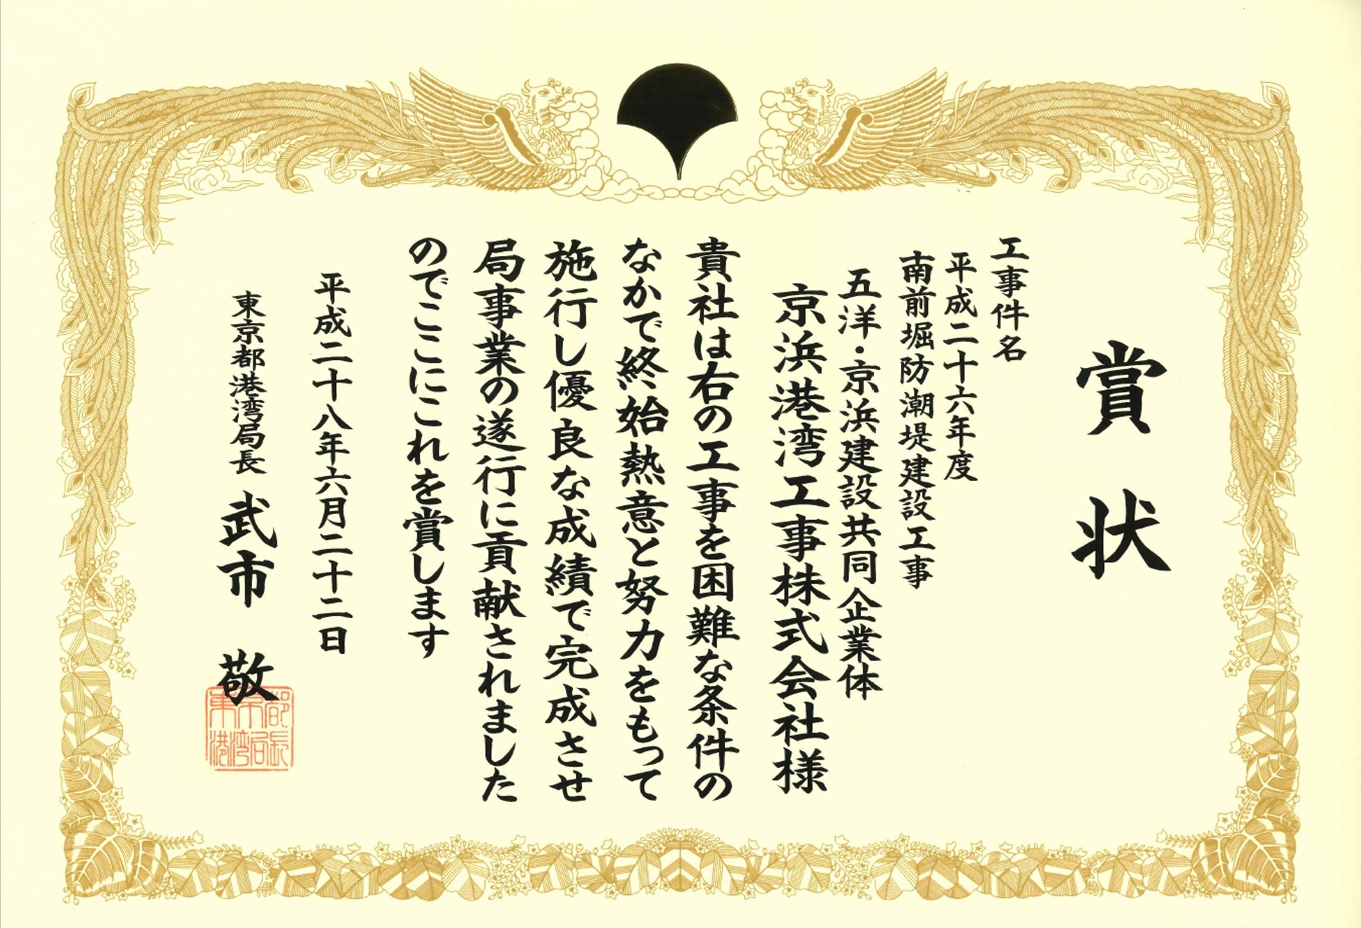 賞状
工事件名
平成二十六年度
南前堀防潮堤建設工事
五洋・京浜建設共同企業体
京浜港湾工事株式会社様
貴社は右の工事を困難な条件の
なかで終始熱意と努力をもって
施行し優良な成績で完成させ
局事業の遂行に貢献されました
のでここにこれを賞します
平成二十八年六月二十二日
東京都港湾局長 武市 敬